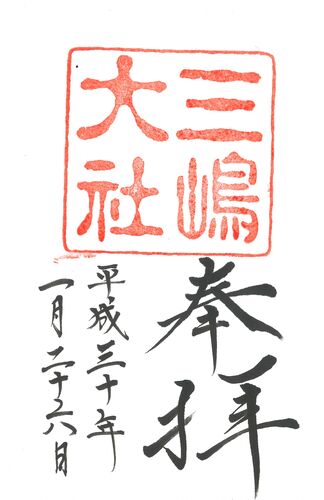 三嶋
大社
奉拝
平成三十年
一月二十六日